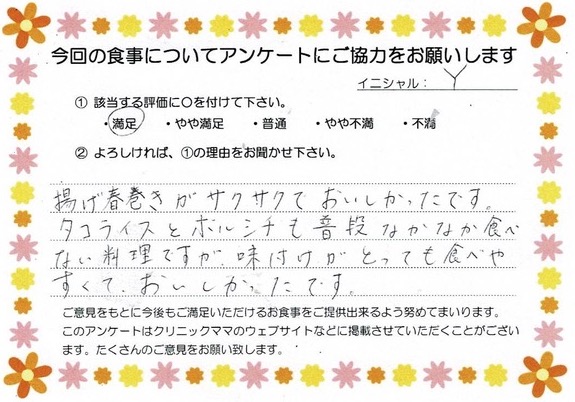 今回の食事についてアンケートにご協力をお願いします
イニシャル： Y
① 該当する評価に○を付けて下さい。
・満足 ・やや満足 ・普通 ・やや不満 ・不満
② よろしければ、①の理由をお聞かせ下さい。
揚げ春巻きがサクサクで おいしかったです。
タコライスとボルシチも普段なかなか食べ
ない料理ですが、味付けがとっても食べや
すくて、おいしかったです。
ご意見をもとに今後もご満足いただけるお食事をご提供出来るよう努めてまいります。
このアンケートはクリニックママのウェブサイトなどに掲載させていただくことがござい
ます。たくさんのご意見をお願い致します。